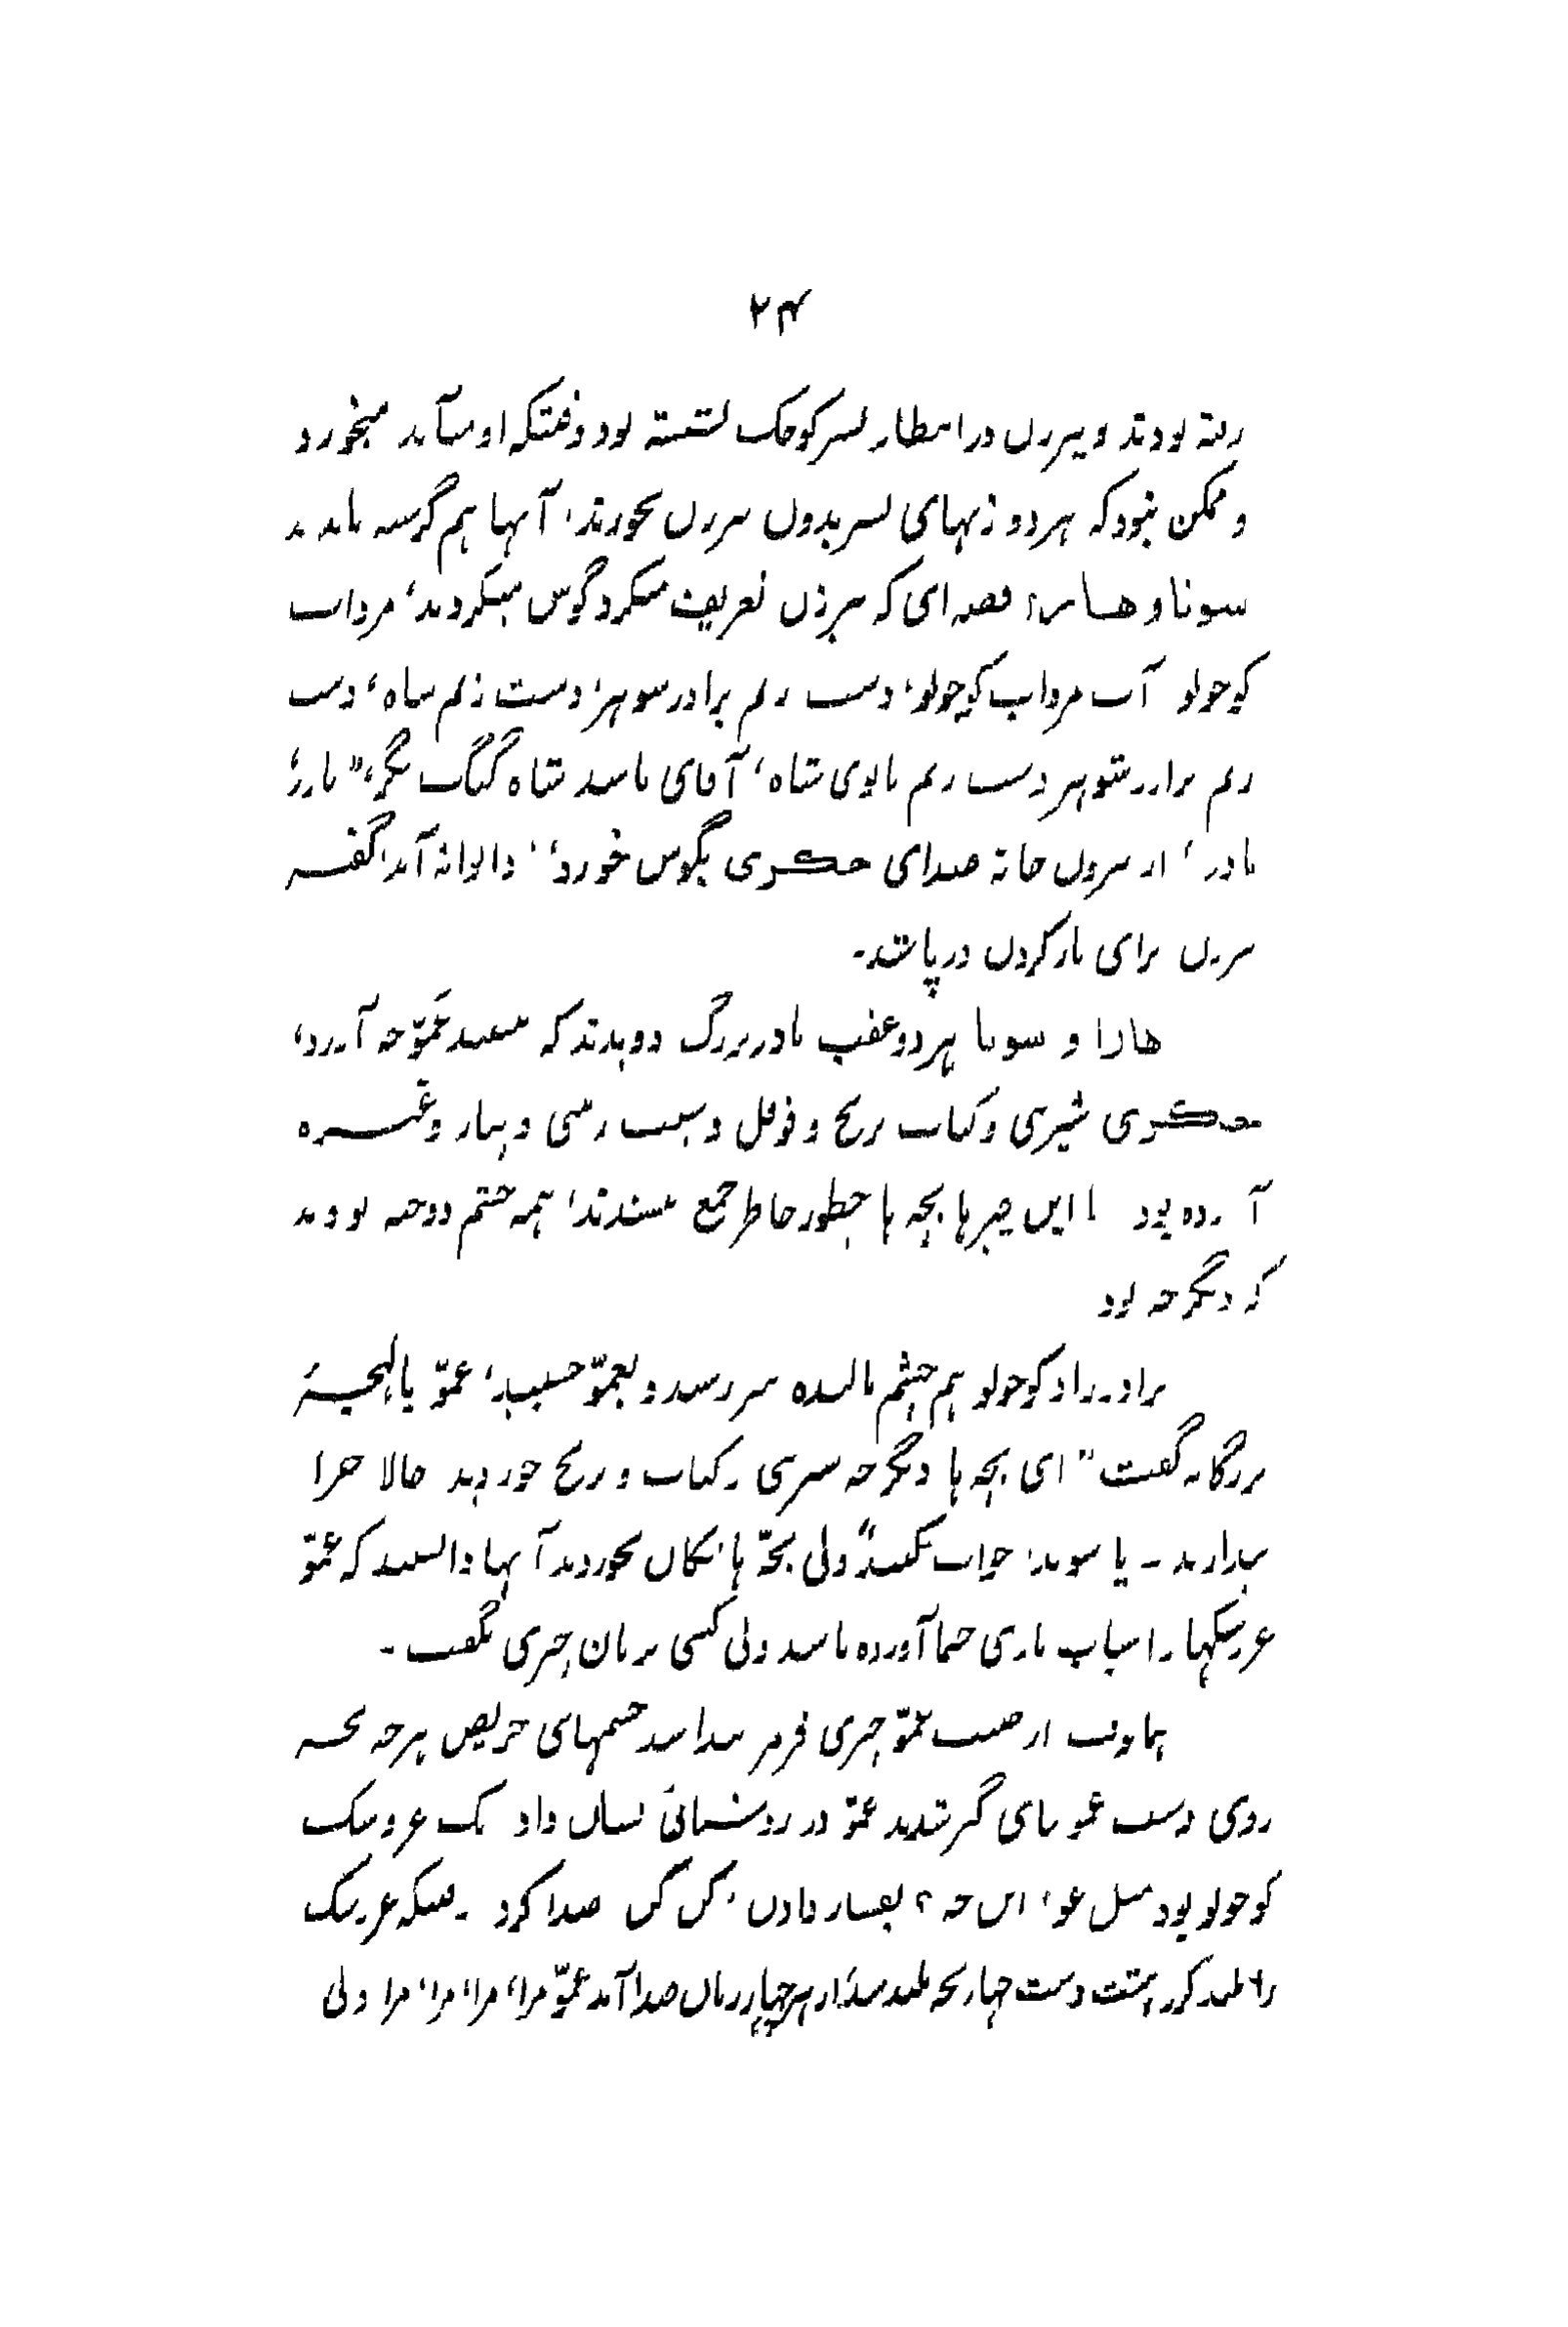 ۲۴
رفته بودند و پیرزن در انتظار پسر کوچک نشسته بود وقتیکه او میآمد میخورد
و ممکن نبود که هر دو زنهای پسر بدون پیرزن بخورند، آنها هم گرسنه ماندند
سونا و هارا، قصه ای که پیرزن تعریف میکرد گوش میکردند، مرداب
کوچولو آب مرداب کوچولو، دست زنم برادر شوهر، دست زنم شاه، دست
زنم برادر شوهر دست زنم بابوی شاه، آقای ما سید شاه گنگ بگیر،" مادر،
مادر، از بیرون خانه صدای چکری بگوش خورد،' دالوانه آمد، گفته
پیرزن برای باز کردن در پا شد۔
هارا و سونا هر دو عقب مادر بزرگ دویدند که ببینند عمو چه آورد،
چکری شیرینی و کتاب برنج و فوفل و سیب زمینی و پیاز و غیره
آورده بود با این چیزها بچه ها چطور خاطر جمع میشدند، همه چشم دوخته بودند
که دیگر چه بود
برادرزاده کوچولو هم چشم مالیده سر رسید و بعمو چسپید، عمو با لهجهٔ
بزرگانه گفت" ای بچه ها دیگر چه شیرینی، کتاب و برنج خوردید حالا چرا
بیدارید ۔ پا شوید، خواب بکنید" ولی بچه ها، تکان نخوردند آنها دانستند که عمو
عروسکها و اسباب بازی حتما آورده باشد ولی کسی بزبان چیزی نگفت ۔
بماوقت از جیب عمو چیزی قرمز پیدا شد چشمهای حریص هر چه بچه
روی دست عمو بنای گرشدند عمو در روشنائی نشان داد یک عروسک
کوچولو بود مثل عمو، این چه؟ بفشار دادن، گن گن صدا کرد ۔ وقتیکه عروسک
را بلند کرد هشت دست چهار بچه بلند شد از هر چهار زبان صدا آمد عمو مرا، مرا، مرا، مرا ولی